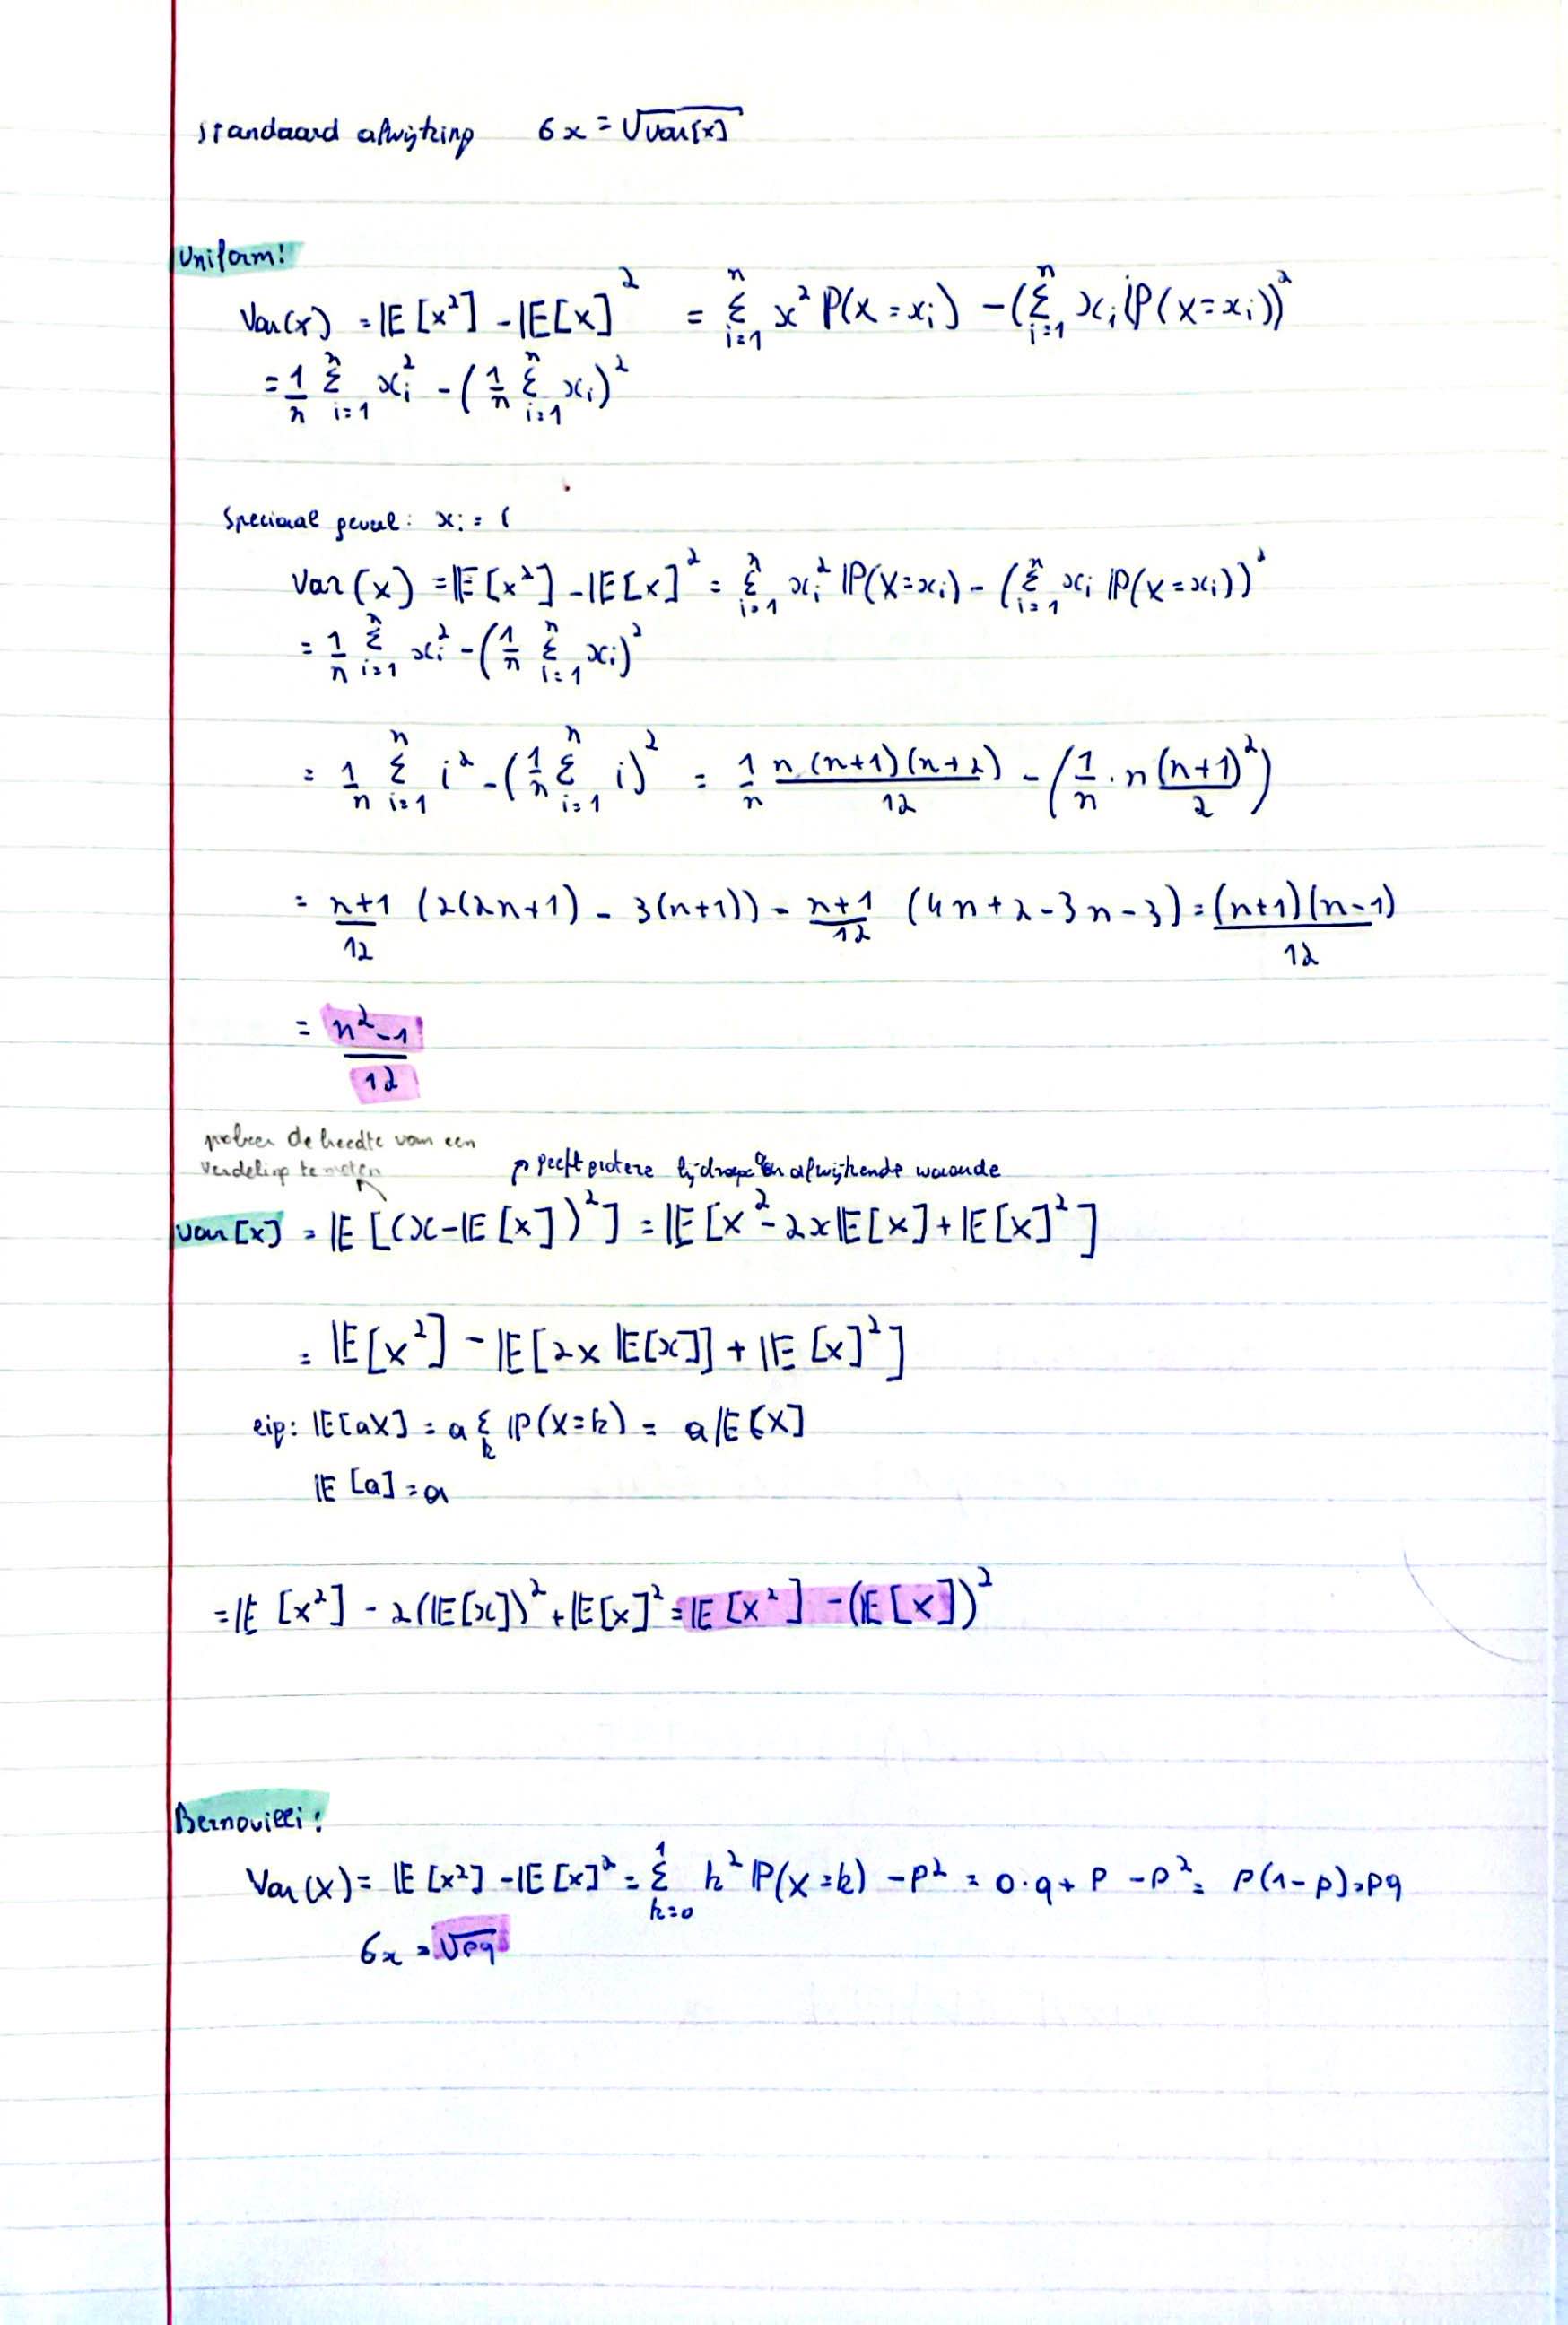 standaard afwijking σx = √Var[x]
Uniform:
Var(x) = 𝔼[x²] - 𝔼[x]² = Σ_{i=1}^{n} x² ℙ(x = x_i) - (Σ_{i=1}^{n} x_i ℙ(x = x_i))²
= 1/n Σ_{i=1}^{n} x_i² - (1/n Σ_{i=1}^{n} x_i)²
Speciaal geval: x_i = i
Var(x) = 𝔼[x²] - 𝔼[x]² = Σ_{i=1}^{n} x_i² ℙ(X = x_i) - (Σ_{i=1}^{n} x_i ℙ(X = x_i))²
= 1/n Σ_{i=1}^{n} x_i² - (1/n Σ_{i=1}^{n} x_i)²
= 1/n Σ_{i=1}^{n} i² - (1/n Σ_{i=1}^{n} i)² = 1/n n(n+1)(n+2)/12 - (1/n · n(n+1)²/2)
= n+1/12 (2(2n+1) - 3(n+1)) = n+1/12 (4n + 2 - 3n - 3) = (n+1)(n-1)/12
= n² - 1/12
probeer de breedte van een
verdeling te meten geeft grotere bijdrage aan afwijkende waarde
Var[x] = 𝔼[(x - 𝔼[x])²] = 𝔼[x² - 2x𝔼[x] + 𝔼[x]²]
= 𝔼[x²] - 𝔼[2x 𝔼[x]] + 𝔼[x]²]
eig: 𝔼[aX] = a Σ_k ℙ(X = k) = a𝔼[X]
𝔼[a] = a
= 𝔼[x²] - 2(𝔼[x])² + 𝔼[x]² = 𝔼[x²] - (𝔼[x])²
Bernouilli:
Var(X) = 𝔼[x²] - 𝔼[x]² = Σ_{k=0}^{1} k² ℙ(X = k) - p² = 0·q + p - p² = p(1-p) = pq
σx = √pq